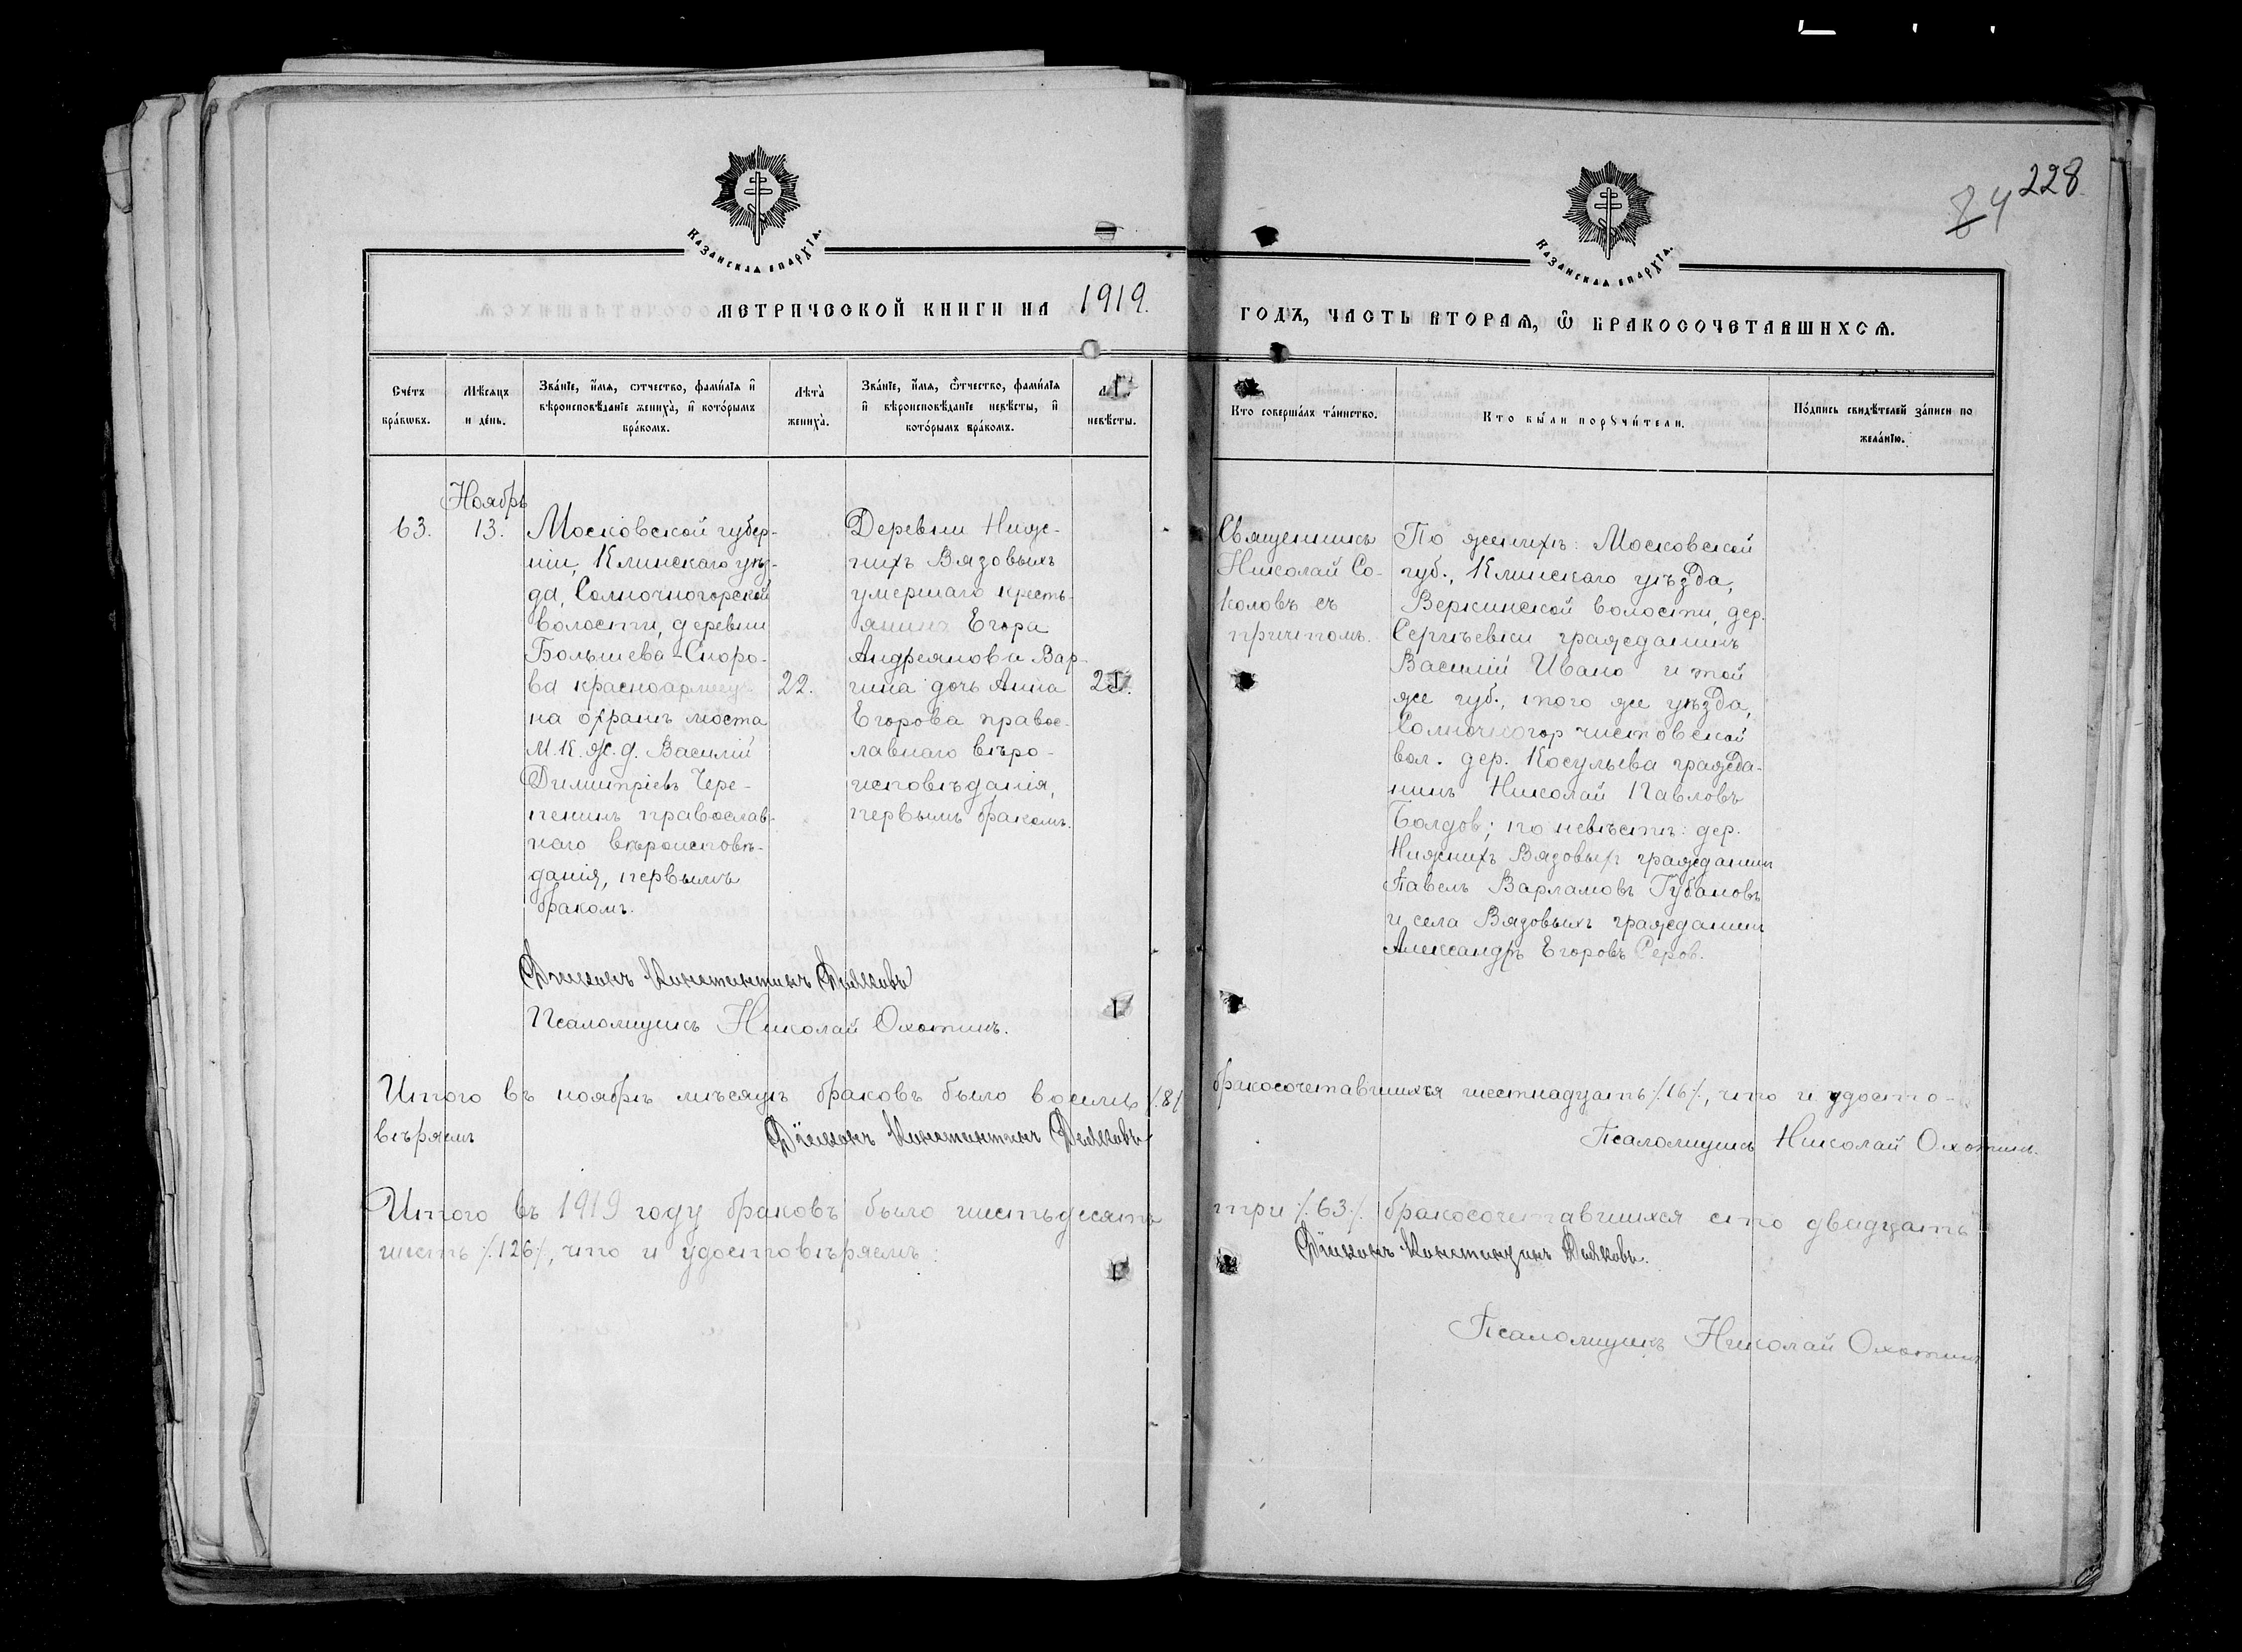 228
84
Казанская епархїа.
Казанская епархїа.
МЕТРИЧЕСКОЙ КНИГИ НА 1919.
ГОДЪ, ЧАСТЬ ВТОРАѦ, Ѽ БРАКОСОЧЕТАВШИХСѦ.
Сче́тъ бра́кѡвъ.
Мѣ́сяцъ и де́нь.
Зва́нїе, и́мя, ѻтчество, фами́лїя и вѣроисповѣ́данїе жениха̀, и кото́рымъ бра́комъ.
Лѣта̀ жениха̀.
Зва́нїе, и́мя, ѻтчество, фами́лїя и вѣроисповѣ́данїе невѣ́сты, и кото́рымъ бра́комъ.
невѣ́сты.
Кто соверша́лъ та́инство.
Кто бы́ли порꙋчи́тели.
По́дпись свидѣ́телей за́писи по жела́нїю.
Ноябрь
63.
13.
Московской губер-
ніи, Клинскаго уѣз-
да, Солночногорской
волости, деревни
Большева-Скоро-
ва красноармеец
на охранѣ моста
М. К. Ж. д. Василій
Димитріевъ Чере-
пенинъ православ-
наго вѣроисповѣ-
данія, первымъ
бракомъ.
22.
Деревни Ниж-
нихъ Вязовыхъ
умершаго кресть-
янина Егора
Андреянова Вар-
гина дочь Анна
Егорова правос-
лавнаго вѣро-
исповѣданія,
первымъ бракомъ.
Священникъ
Николай Со-
коловъ съ
причтомъ.
По женихѣ: Московской
губ., Клинскаго уѣзда,
Веркинской волости, дер.
Сергѣевки гражданинъ
Василій Ивано и той
же губ., того же уѣзда,
Солночногор чистовской
вол. дер. Косульева гражда-
нинъ Николай Павловъ
Болдов; по невѣстѣ: дер.
Нижнихъ Вязовыхъ гражданинъ
Павелъ Варламовъ Губановъ
и села Вязовыхъ гражданинъ
Александръ Егоровъ Серов.
Дiаконъ Константинъ Дьяковъ
Псаломщикъ Николай Охотинъ.
Итого въ ноябрѣ мѣсяцѣ браковъ было восемь /.8./ бракосочетавшихся шестнадцать /.16./, что и удосто-
вѣряемъ Дїаконъ Константинъ Дьяковъ
Псаломщикъ Николай Охотинъ.
Итого въ 1919 году браковъ было шестьдесятъ три /.63./ бракосочетавшихся сто двадцать
шесть /.126./, что и удостовѣряемъ:
Дїаконъ Константинъ Дьяковъ.
Псаломщикъ Николай Охотинъ